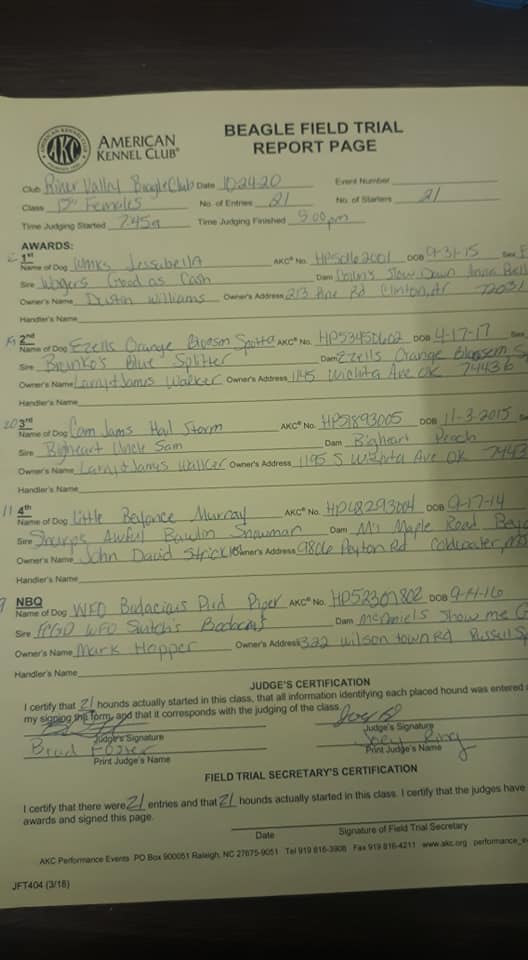 AMERICAN KENNEL CLUB
AKC
AMERICAN
KENNEL CLUB®
BEAGLE FIELD TRIAL
REPORT PAGE
Club River Valley Beagle Club Date 10-24-20 Event Number
Class 13" Females No. of Entries 21 No. of Starters 21
Time Judging Started 7:45a Time Judging Finished 5:00pm
AWARDS:
1st
Name of Dog Jessabella AKC® No. DOB 9-31-15 Sex F
Sire Good as Cash Dam Slow Down
Owner's Name Dustin Williams Owner's Address 213 Pine Rd Clinton, Ar 72031
Handler's Name
2nd
Name of Dog Ezells Orange Blossom AKC® No. HP53450602 DOB 4-17-17 Sex
Sire Blue Splitter Dam Ezells Orange Blossom
Owner's Name Larry & James Walker Owner's Address Wichita Ave OK 74436
Handler's Name
20 3rd
Name of Dog Cam Jams Hail Storm AKC® No. HP51893005 DOB 11-3-2015
Sire Bigheart Uncle Sam Dam Bigheart Peach
Owner's Name Larry & James Walker Owner's Address 1195 S Wichita Ave OK 7443
Handler's Name
11 4th
Name of Dog Little Beyonce Murray AKC® No. HP48293004 DOB 9-17-14
Sire Sharps Awful Bawlin Snowman Dam Maple Road
Owner's Name John David Owner's Address 9806 Peyton Rd Coldwater, MS
Handler's Name
9 NBQ
Name of Dog WFO Budacious Pied Piper AKC® No. HP52301802 DOB 9-4-16
Sire WFO Switch's Dam McDaniels Show me
Owner's Name Mark Hopper Owner's Address 322 Wilson town Rd Russell Sp
Handler's Name
JUDGE'S CERTIFICATION
I certify that 21 hounds actually started in this class, that all information identifying each placed hound was entered
my signing the form, and that it corresponds with the judging of the class.
Judge's Signature Judge's Signature
Brad Joey Ring
Print Judge's Name Print Judge's Name
FIELD TRIAL SECRETARY'S CERTIFICATION
I certify that there were 21 entries and that 21 hounds actually started in this class. I certify the judges have
awards and signed this page.
Date Signature of Field Trial Secretary
AKC Performance Events PO Box 900051 Raleigh, NC 27675-9051 Tel 919 816-3908 Fax 919 816-4211 www.akc.org
JFT404 (3/18)